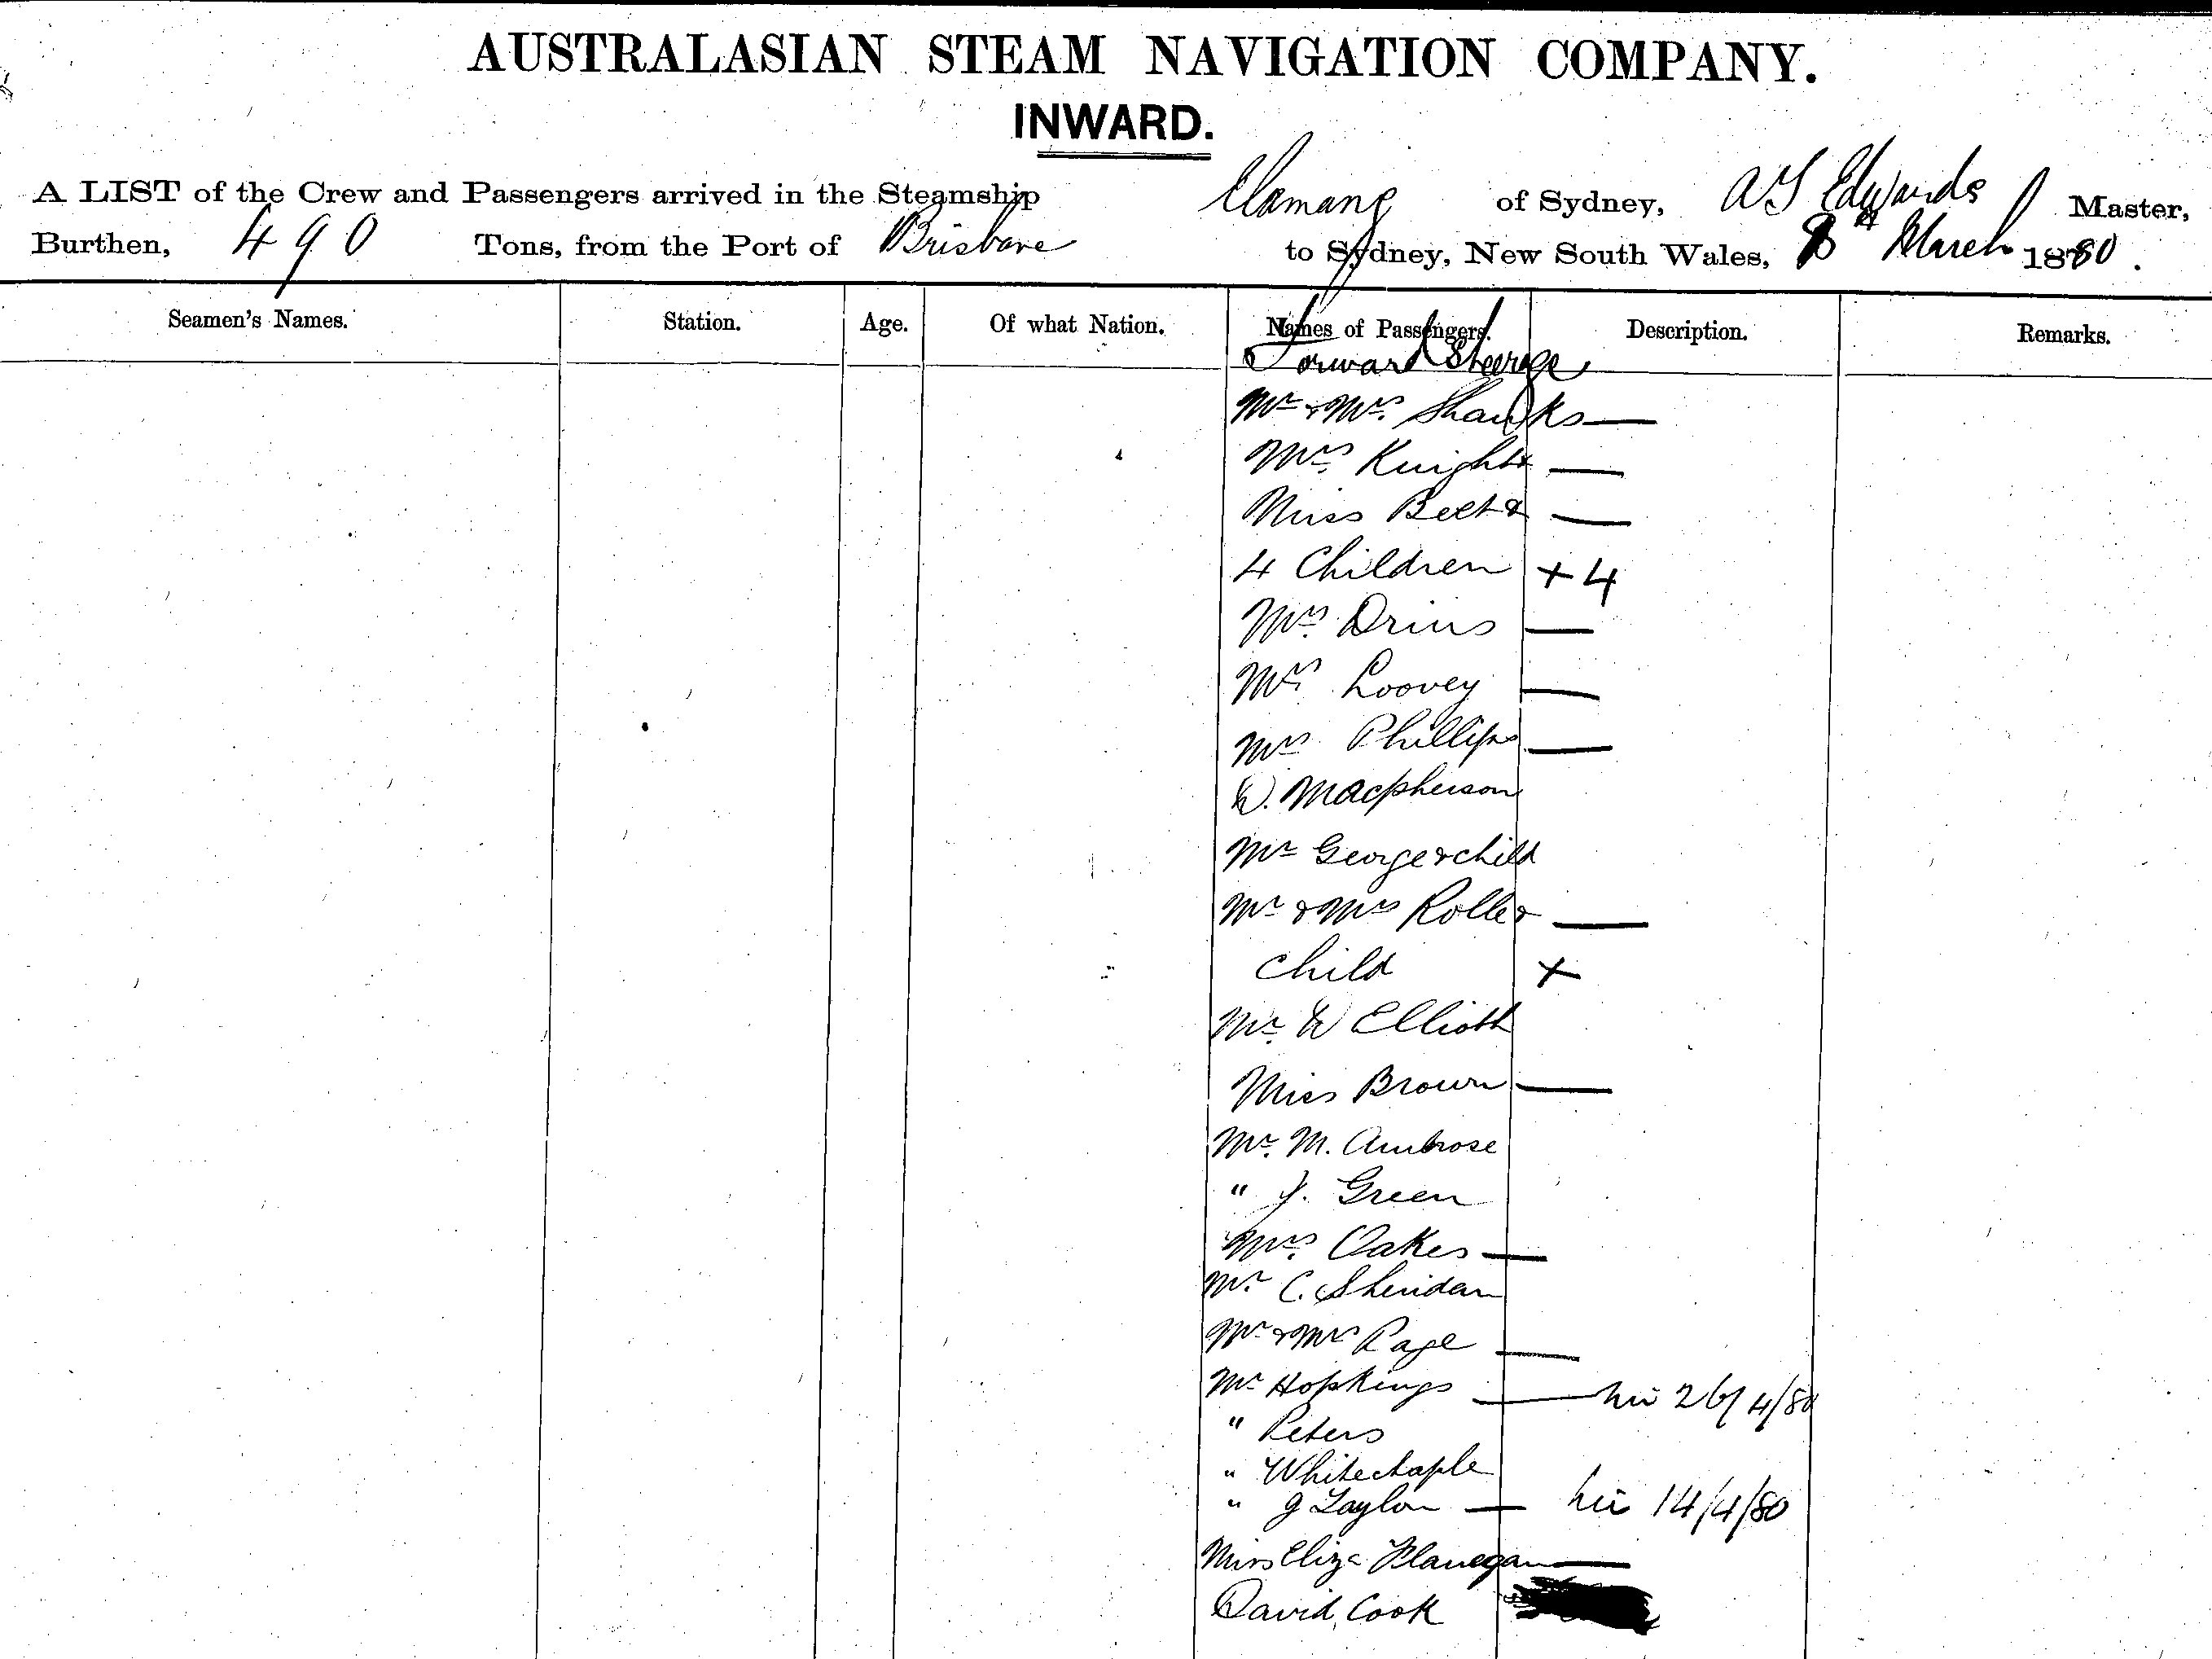 AUSTRALASIAN STEAM NAVIGATION COMPANY.
INWARD.
A LIST of the Crew and Passengers arrived in the Steamship Elamang of Sydney, A J Edwards Master,
Burthen, 490 Tons, from the Port of Brisbane to Sydney, New South Wales, 8th March 1880.
Seamen's Names. Station. Age. Of what Nation. Names of Passengers. Description. Remarks.
Forward Steerage
Mr & Mrs. Shanks —
Mrs. Knight & —
Miss Beet & —
4 Children + 4
Mrs. Drins —
Mrs. Loovey —
Mrs. Phillips —
W. Macpherson
Mr George & child
Mr & Mrs Roll & —
Child +
Mr. W Elliott
Miss Brown —
Mr. M. Ambrose
" J. Green
Mrs. Oakes —
Mr. C. Sheridan
Mr & Mrs Page —
Mr Hopkings — 26/4/80
" Peters
" Whitechaple
" J Taylor — 14/4/80
Miss Eliza Flanegan —
David Cook